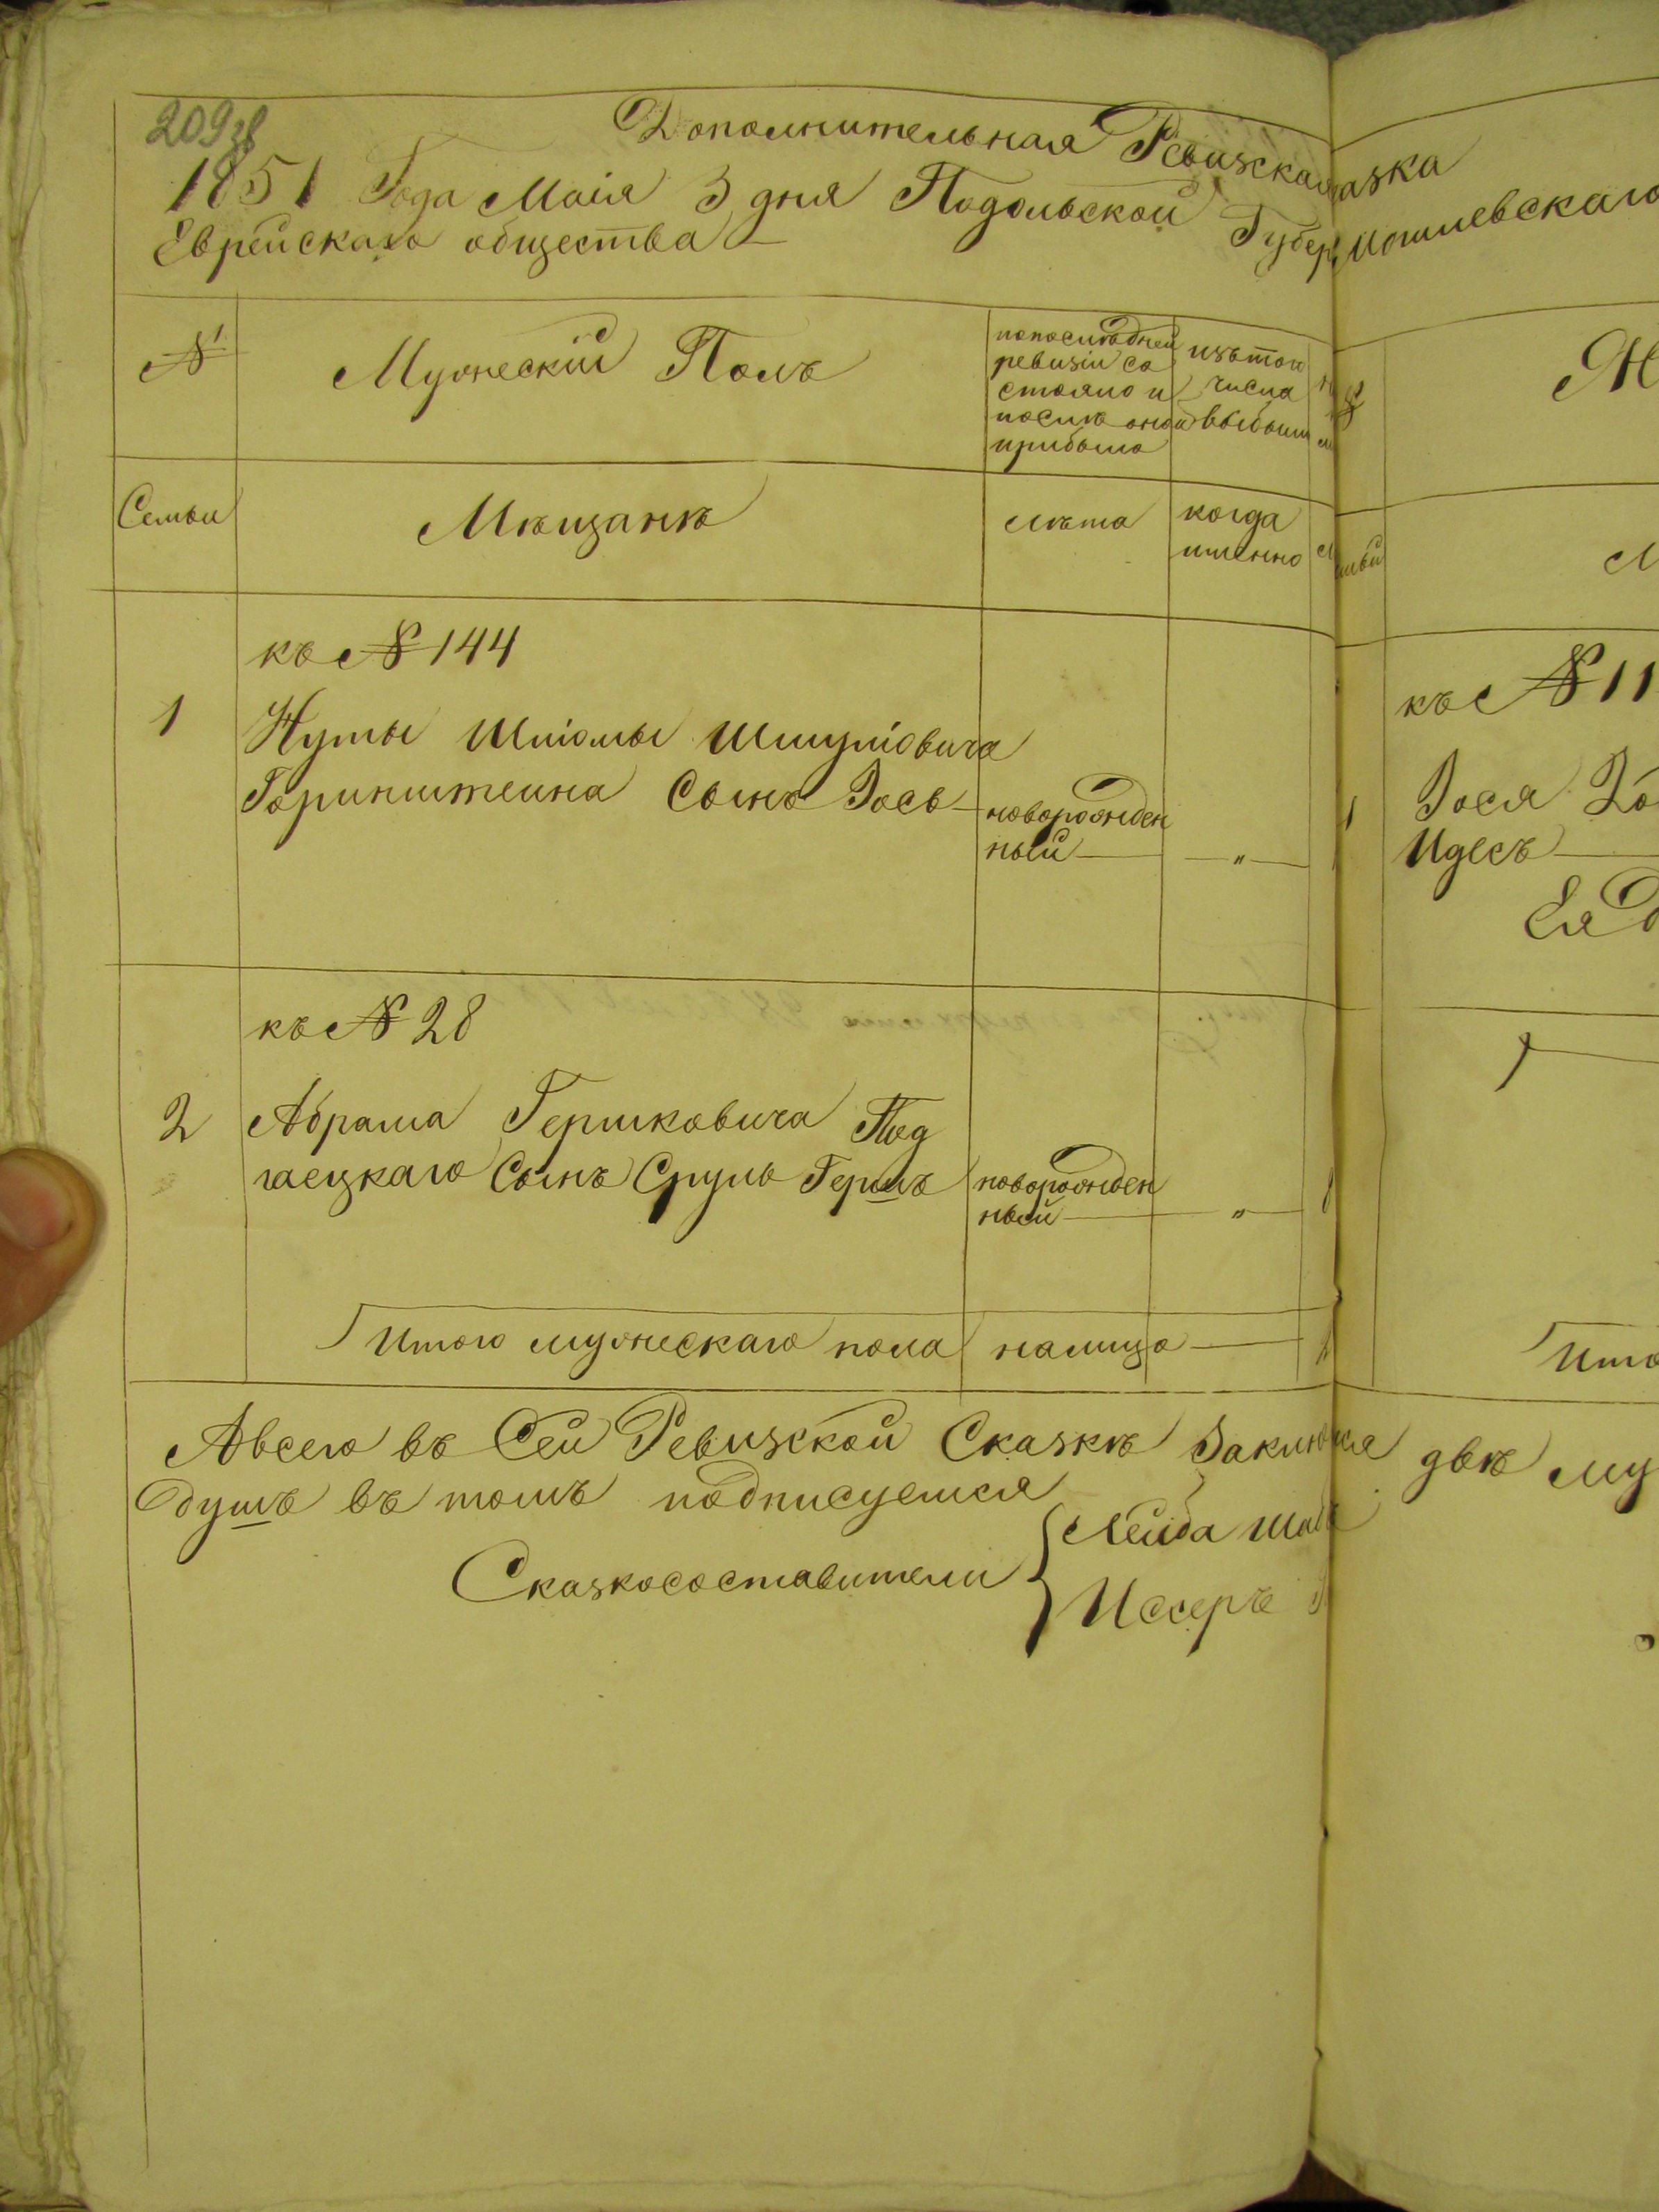 209
Дополнительная Ревизская
азка
1851 Года Маія 3 дня Подольской Губер
Могилевскаго
Еврейскаго общества —
№
Мужескій Полъ
по последней ревизіи со
стояло и
после оной
прибыло
изъ того
числа
выбыли
Семьи
Мѣщанѣ
лѣта
когда
именно
къ № 144
1
Нуты Шліомы Шмуліовича
Горинштейна Сынъ Іось —
новорожден
ный — „ —
къ № 28
2
Абрама Гершковича Под
гаецкаго Сынъ Сруль Гершъ
новорожден
ный — „ —
Итого мужескаго пола налицо —
Авсего въ Сей Ревизской Сказкѣ Заклю
душъ въ томъ подписуемся
Сказкосоставители
Лейба
Иссеръ
къ № 11
1
Іося
Идесъ —
Ея
Ито
двѣ му